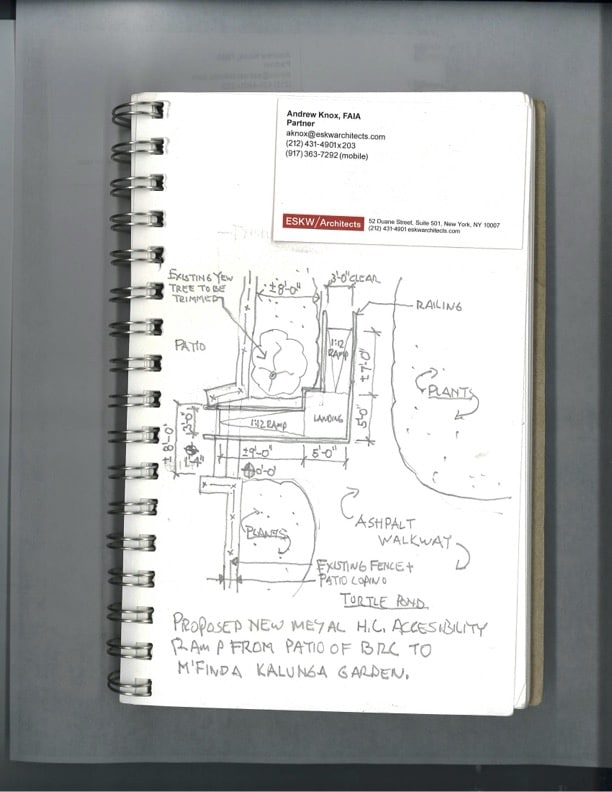 Andrew Knox, FAIA
Partner
aknox@eskwarchitects.com
(212) 431-4901x203
(917) 363-7292 (mobile)
ESKW/Architects
52 Duane Street, Suite 501, New York, NY 10007
(212) 431-4901 eskwarchitects.com
EXISTING YEW
TREE TO BE
TRIMMED
±8'-0"
3'-0" CLEAR
RAILING
PATIO
1:12
RAMP
±7'-0"
PLANTS
±8'-0"
3'-0"
1:12 RAMP
LANDING
5'-0"
±9'-0"
5'-0"
0'-0"
PLANTS
ASHPALT
WALKWAY
EXISTING FENCE +
PATIO COPING
TURTLE POND
PROPOSED NEW METAL H.C. ACCESIBILITY
RAMP FROM PATIO OF BRC TO
M'FINDA KALUNGA GARDEN.